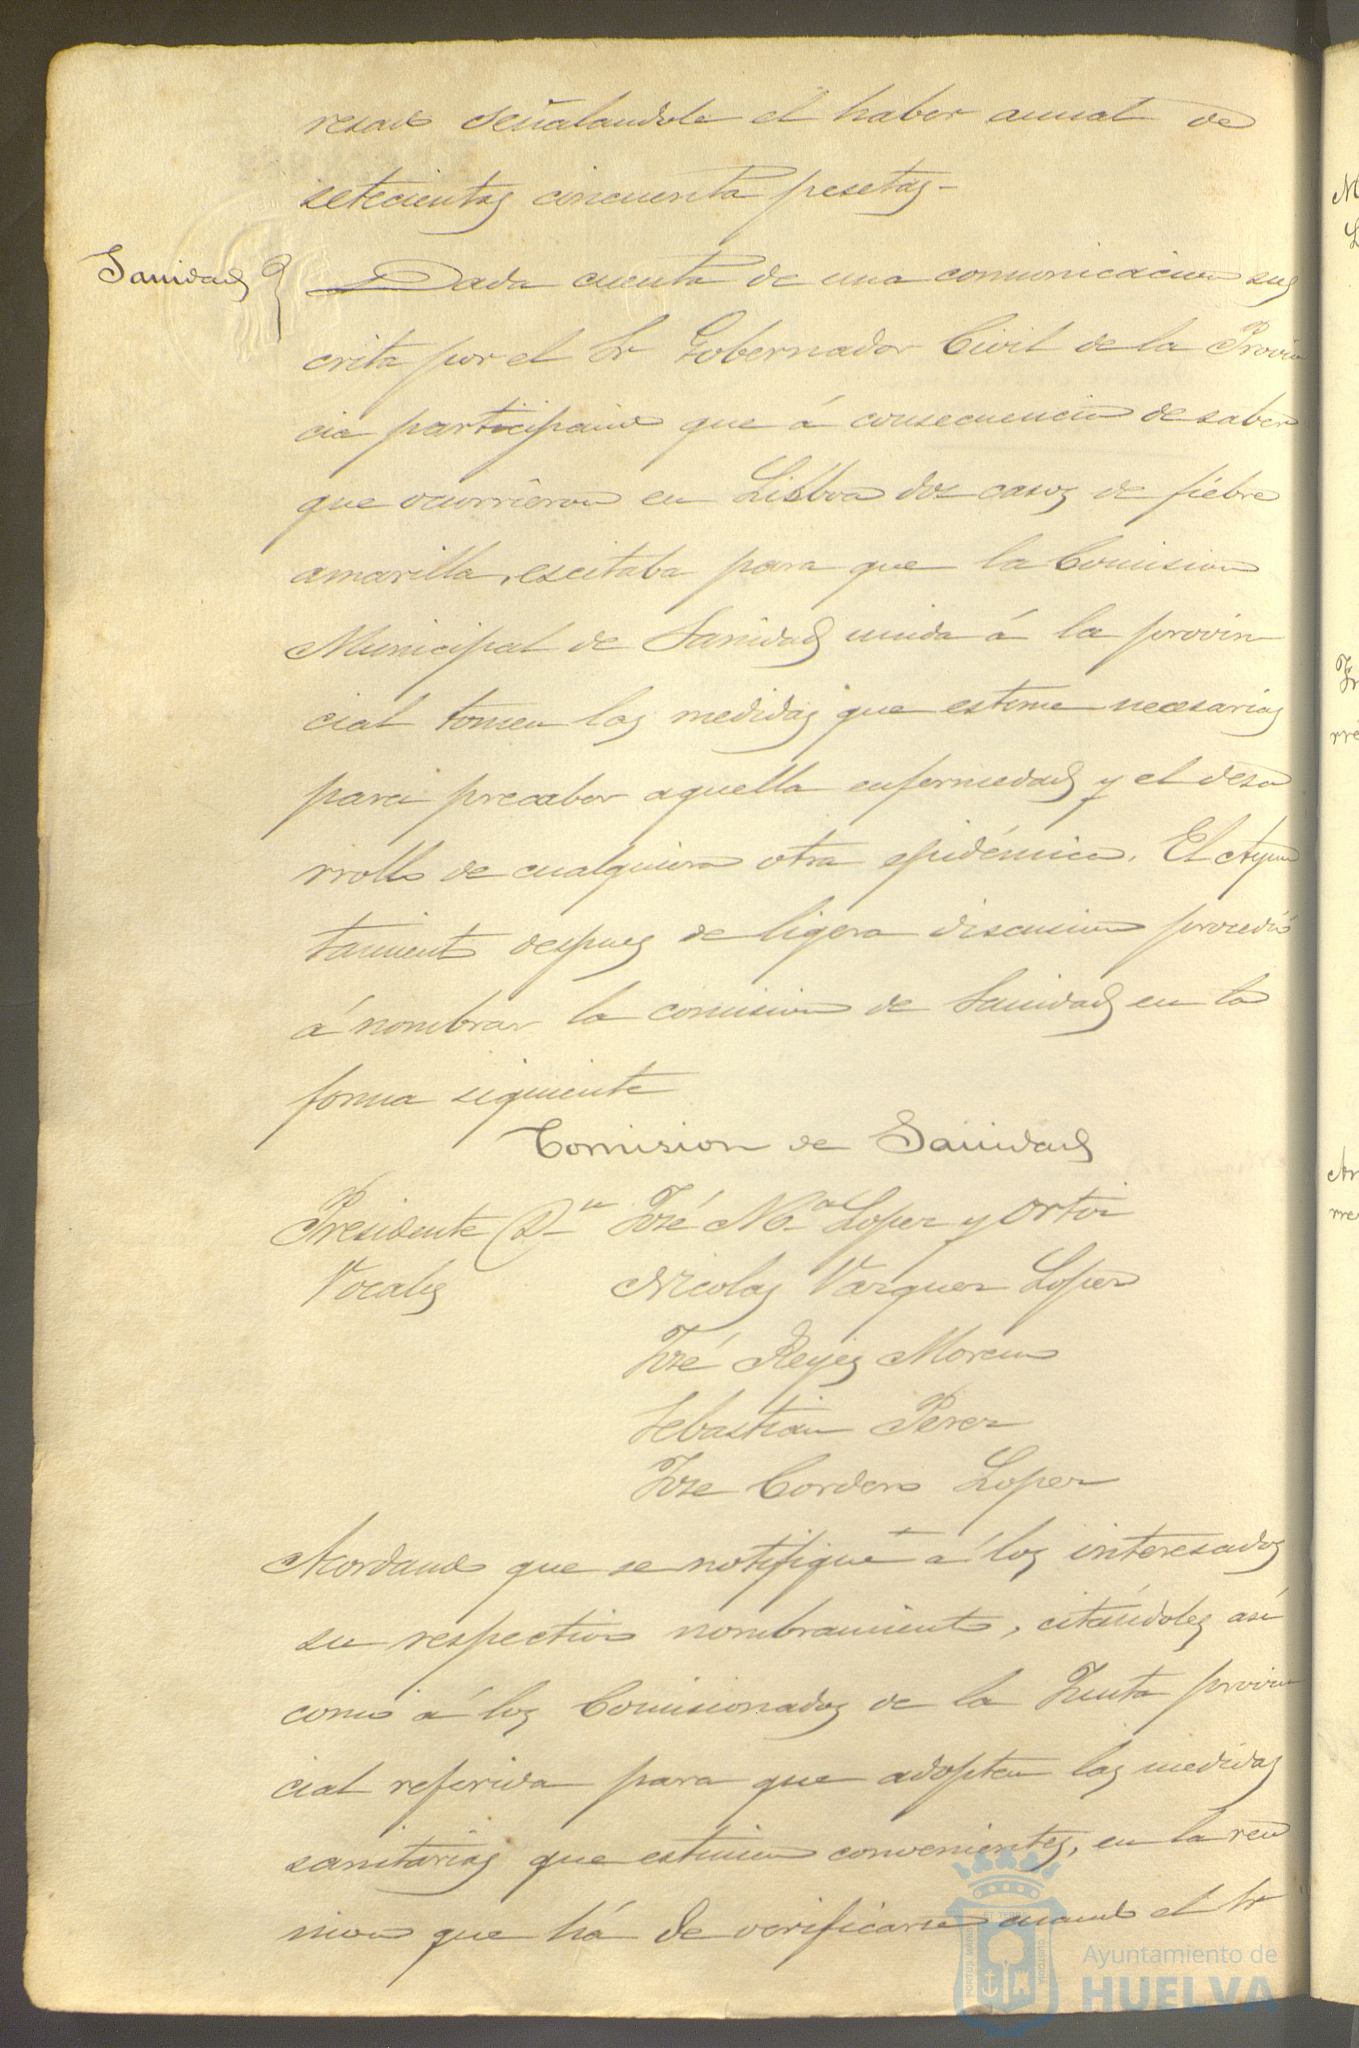 resado señalandole el haber anual de
setecientas cincuenta pesetas-
Sanidad
Dada cuenta de una comunicacion sus
crita por el Sr Gobernador Civil de la Provin
cia participando que á consecuencia de saber
que ocurrieron en Lisboa dos casos de fiebre
amarilla, escitaba para que la Comision
Municipal de Sanidad unida á la provin
cial tomen las medidas que estime necesarias
para precaber aquella enfermedad y el desa
rrollo de cualquiera otra epidémica. El Ayun
tamiento despues de ligera discusion procedió
á nombrar la comision de Sanidad en la
forma siguiente
Comision de Sanidad
Presidente Dn José Ma Lopez y Ortiz
Vocales Nicolas Vazquez Lopez
José Reyes Moreno
Sebastian Perez
Jose Cordero Lopez
Acordando que se notifique á los interesados
su respectivo nombramiento, citándoles así
como á los Comisionados de la Junta provin
cial referida para que adopten las medidas
sanitarias que estimen convenientes, en la reu
nion que há de verificarse cuando el Sr
PORTUS MARIS
ET TERRÆ
CUSTODIA
Ayuntamiento de
HUELVA